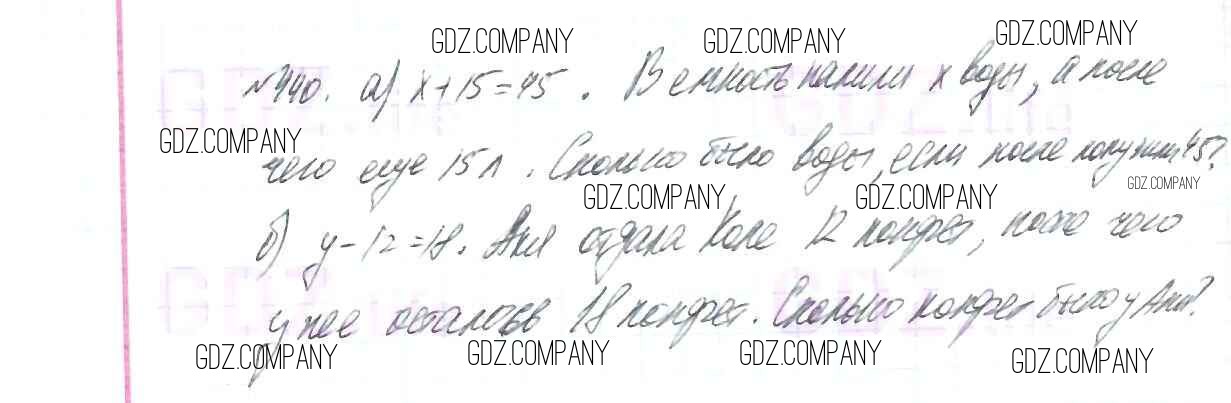 GDZ.COMPANY GDZ.COMPANY GDZ.COMPANY
№440. а) x+15=45. В емкость налили x воды, а после
GDZ.COMPANY
чего еще 15л. Сколько было воды, если после получили 45?
GDZ.COMPANY GDZ.COMPANY GDZ.COMPANY
б) y-12=18. Аня отдала Коле 12 конфет, после чего
у нее осталось 18 конфет. Сколько конфет было у Ани?
GDZ.COMPANY GDZ.COMPANY GDZ.COMPANY GDZ.COMPANY